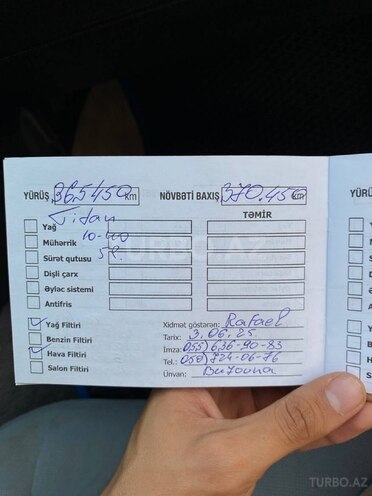 YÜRÜŞ 365450 km NÖVBƏTİ BAXIŞ 370.450 km
TƏMİR
Titan
Yağ
10-40
Mühərrik
5l.
Sürət qutusu
Dişli çarx
Əylac sistemi
Antifris
Yağ Filtiri
Xidmət göstərən: Rafael
Benzin Filtiri
Tarix: 3.06.25
Hava Filtiri
İmza: (055) 636-90-83
Tel.: (050) 724-06-76
Salon Filtiri
Ünvan: Buzovna
TURBO.AZ
TURBO.AZ
YÜRÜŞ